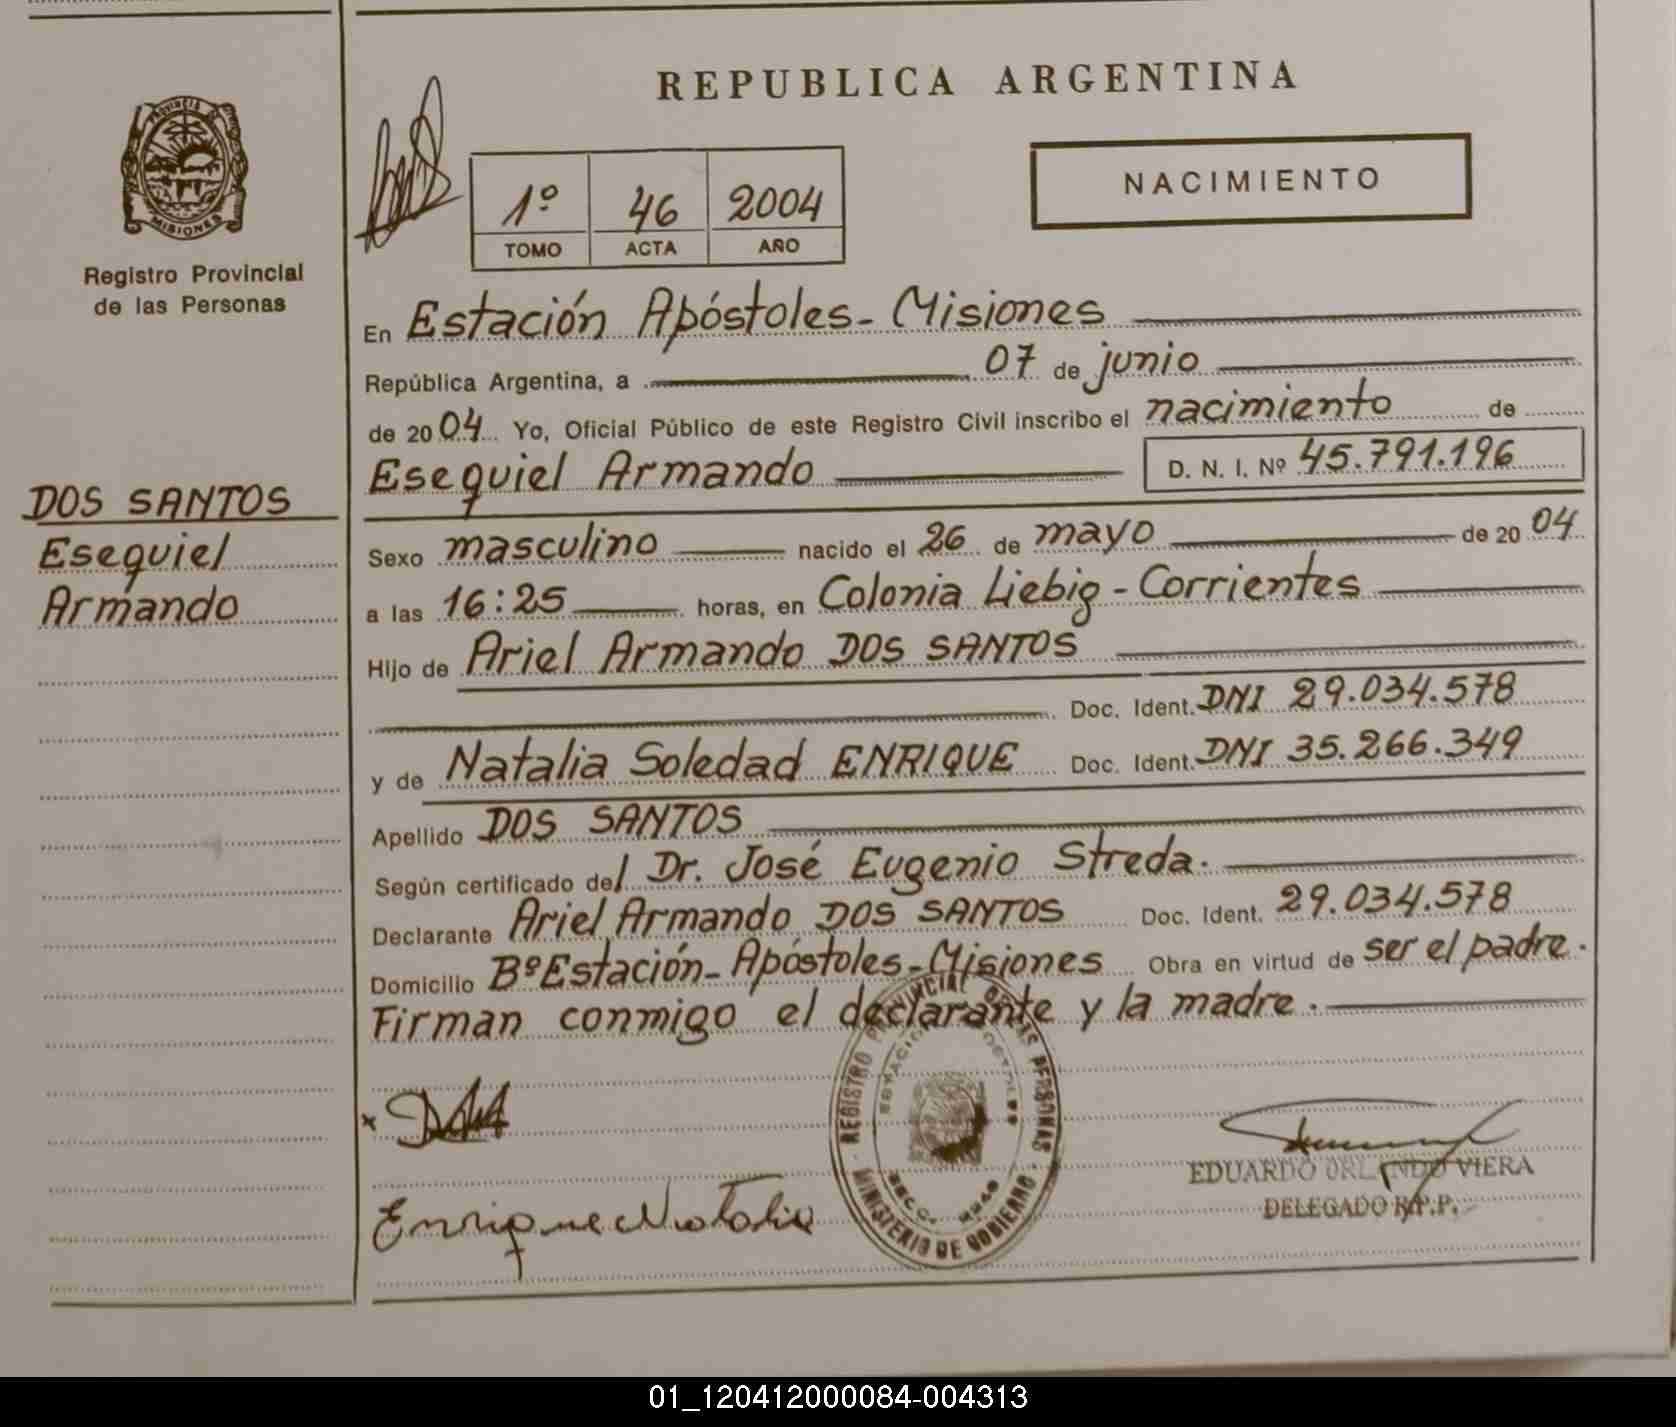 REPUBLICA ARGENTINA
NACIMIENTO
PROVINCIA DE
MISIONES
Registro Provincial
de las Personas
1º 46 2004
TOMO ACTA AÑO
En Estación Apóstoles - Misiones
República Argentina, a 07 de junio
de 2004 Yo, Oficial Público de este Registro Civil inscribo el nacimiento de
Esequiel Armando D. N. I. Nº 45.791.196
DOS SANTOS
Esequiel
Armando
Sexo masculino nacido el 26 de mayo de 2004
a las 16:25 horas, en Colonia Liebig - Corrientes
Hijo de Ariel Armando DOS SANTOS
Doc. Ident. DNI 29.034.578
y de Natalia Soledad ENRIQUE Doc. Ident. DNI 35.266.349
Apellido DOS SANTOS
Según certificado del Dr. José Eugenio Streda.
Declarante Ariel Armando DOS SANTOS Doc. Ident. 29.034.578
Domicilio Bº Estación - Apóstoles - Misiones Obra en virtud de ser el padre.
Firman conmigo el declarante y la madre.
REGISTRO PROVINCIAL DE LAS PERSONAS
MINISTERIO DE GOBIERNO
Enrique Natalia
EDUARDO ORLANDO VIERA
DELEGADO R.P.P.
01_120412000084-004313